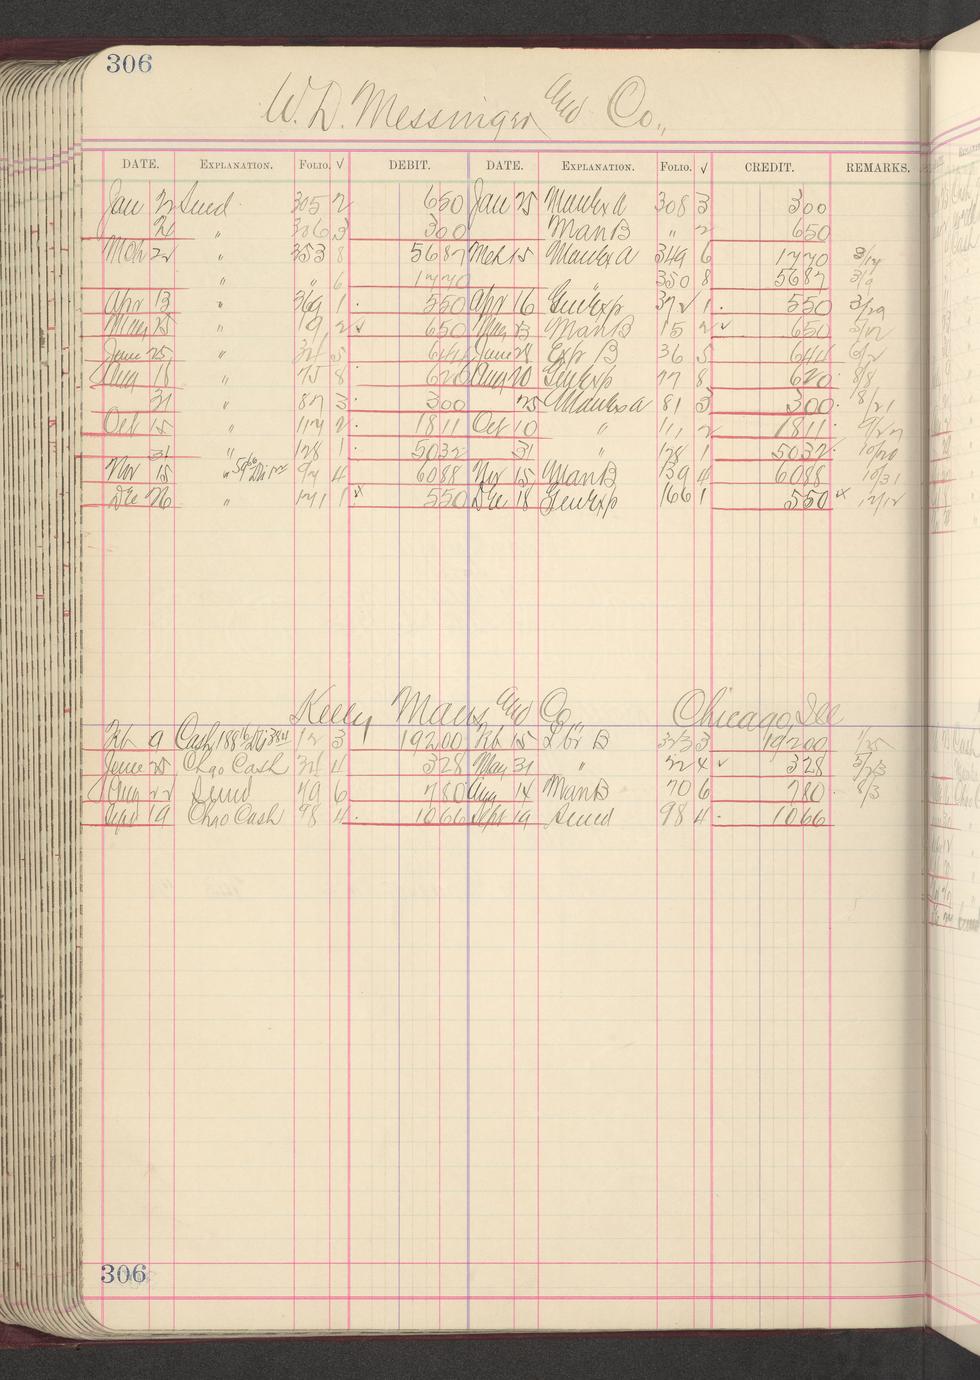 306
W. D. Messinger and Co.,
DATE. EXPLANATION. FOLIO. √ DEBIT. DATE. EXPLANATION. FOLIO. √ CREDIT. REMARKS.
Jan 22 Sund 305 2 650 Jan 25 ManExA 308 3 300
26 " 306 3 300 ManB " 2 650
Mch 22 " 353 8 5687 Mch 15 ManExA 349 6 1770 3/14
" " 6 1770 350 8 5687 3/9
Apr 13 " 369 1 550 Apr 16 GenExp 372 1 550 3/29
May 25 " 19 2 650 May 23 ManB 15 2 650 5/12
June 25 " 34 5 644 June 28 Exp B 36 5 644 6/2
Aug 18 " 75 8 620 Aug 20 GenExp 77 8 620 8/8
31 " 87 3 300 25 ManExA 81 3 300 18/21
Oct 15 " 114 2 1811 Oct 10 " 111 2 1811 9/27
31 " 128 1 5032 31 " 128 1 5032 10/20
Nov 15 " 97 4 6088 Nov 15 ManB 139 4 6088 10/31
Dec 26 " 171 1 550 Dec 18 GenExp 166 1 550 12/12
Kelly Maus and Co Chicago, Ill
Feb 9 Cash 12 3 19200 Feb 15 Lbr B 323 3 19200 1/25
June 25 Chgo Cash 34 4 328 May 31 " 22 4 328 5/23
Aug 22 Sund 79 6 780 Aug 14 ManB 70 6 780 8/3
Sept 19 Chgo Cash 98 4 1066 Sept 19 Sund 98 4 1066
306